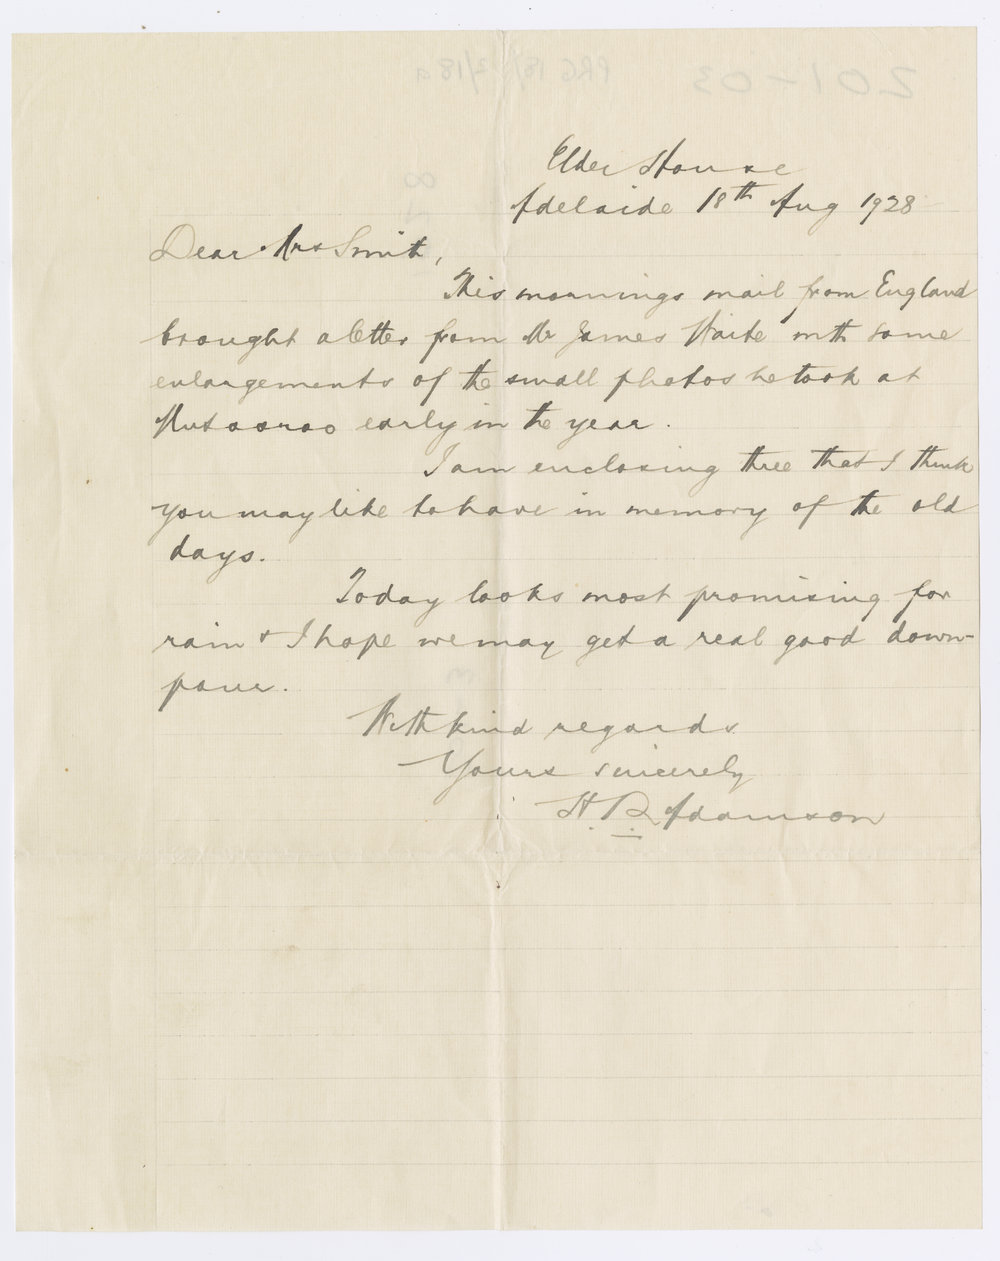 Elder House
Adelaide 18th Aug 1928
Dear Mrs Smith,
This mornings mail from England
brought a letter from Mr James Waite with some
enlargements of the small photos he took at
Mutooroo early in the year.
I am enclosing three that I think
you may like to have in memory of the old
days.
Today looks most promising for
rain & I hope we may get a real good down-
pour.
With kind regards
Yours sincerely
H. R. Adamson